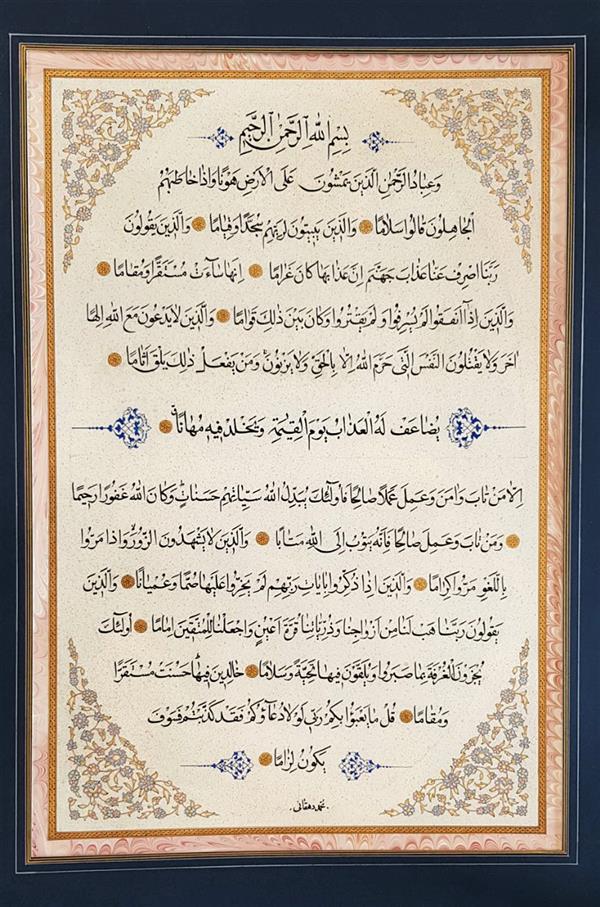 بِسْمِ اللهِ الرَّحْمٰنِ الرَّحِيمِ
وَعِبَادُ الرَّحْمٰنِ الَّذِينَ يَمْشُونَ عَلَى الْأَرْضِ هَوْنًا وَإِذَا خَاطَبَهُمُ
الْجَاهِلُونَ قَالُوا سَلَامًا وَالَّذِينَ يَبِيتُونَ لِرَبِّهِمْ سُجَّدًا وَقِيَامًا وَالَّذِينَ يَقُولُونَ
رَبَّنَا اصْرِفْ عَنَّا عَذَابَ جَهَنَّمَ إِنَّ عَذَابَهَا كَانَ غَرَامًا إِنَّهَا سَاءَتْ مُسْتَقَرًّا وَمُقَامًا
وَالَّذِينَ إِذَا أَنْفَقُوا لَمْ يُسْرِفُوا وَلَمْ يَقْتُرُوا وَكَانَ بَيْنَ ذٰلِكَ قَوَامًا وَالَّذِينَ لَا يَدْعُونَ مَعَ اللهِ إِلٰهًا
اٰخَرَ وَلَا يَقْتُلُونَ النَّفْسَ الَّتِي حَرَّمَ اللهُ إِلَّا بِالْحَقِّ وَلَا يَزْنُونَ وَمَنْ يَفْعَلْ ذٰلِكَ يَلْقَ أَثَامًا
يُضَاعَفْ لَهُ الْعَذَابُ يَوْمَ الْقِيٰمَةِ وَيَخْلُدْ فِيهِ مُهَانًا
إِلَّا مَنْ تَابَ وَاٰمَنَ وَعَمِلَ عَمَلًا صَالِحًا فَأُولٰئِكَ يُبَدِّلُ اللهُ سَيِّئَاتِهِمْ حَسَنَاتٍ وَكَانَ اللهُ غَفُورًا رَحِيمًا
وَمَنْ تَابَ وَعَمِلَ صَالِحًا فَإِنَّهُ يَتُوبُ إِلَى اللهِ مَتَابًا وَالَّذِينَ لَا يَشْهَدُونَ الزُّورَ وَإِذَا مَرُّوا
بِاللَّغْوِ مَرُّوا كِرَامًا وَالَّذِينَ إِذَا ذُكِّرُوا بِاٰيَاتِ رَبِّهِمْ لَمْ يَخِرُّوا عَلَيْهَا صُمًّا وَعُمْيَانًا وَالَّذِينَ
يَقُولُونَ رَبَّنَا هَبْ لَنَا مِنْ أَزْوَاجِنَا وَذُرِّيَّاتِنَا قُرَّةَ أَعْيُنٍ وَاجْعَلْنَا لِلْمُتَّقِينَ إِمَامًا أُولٰئِكَ
يُجْزَوْنَ الْغُرْفَةَ بِمَا صَبَرُوا وَيُلَقَّوْنَ فِيهَا تَحِيَّةً وَسَلَامًا خَالِدِينَ فِيهَا حَسُنَتْ مُسْتَقَرًّا
وَمُقَامًا قُلْ مَا يَعْبَؤُا بِكُمْ رَبِّي لَوْلَا دُعَاؤُكُمْ فَقَدْ كَذَّبْتُمْ فَسَوْفَ
يَكُونُ لِزَامًا
محمد دهقانی